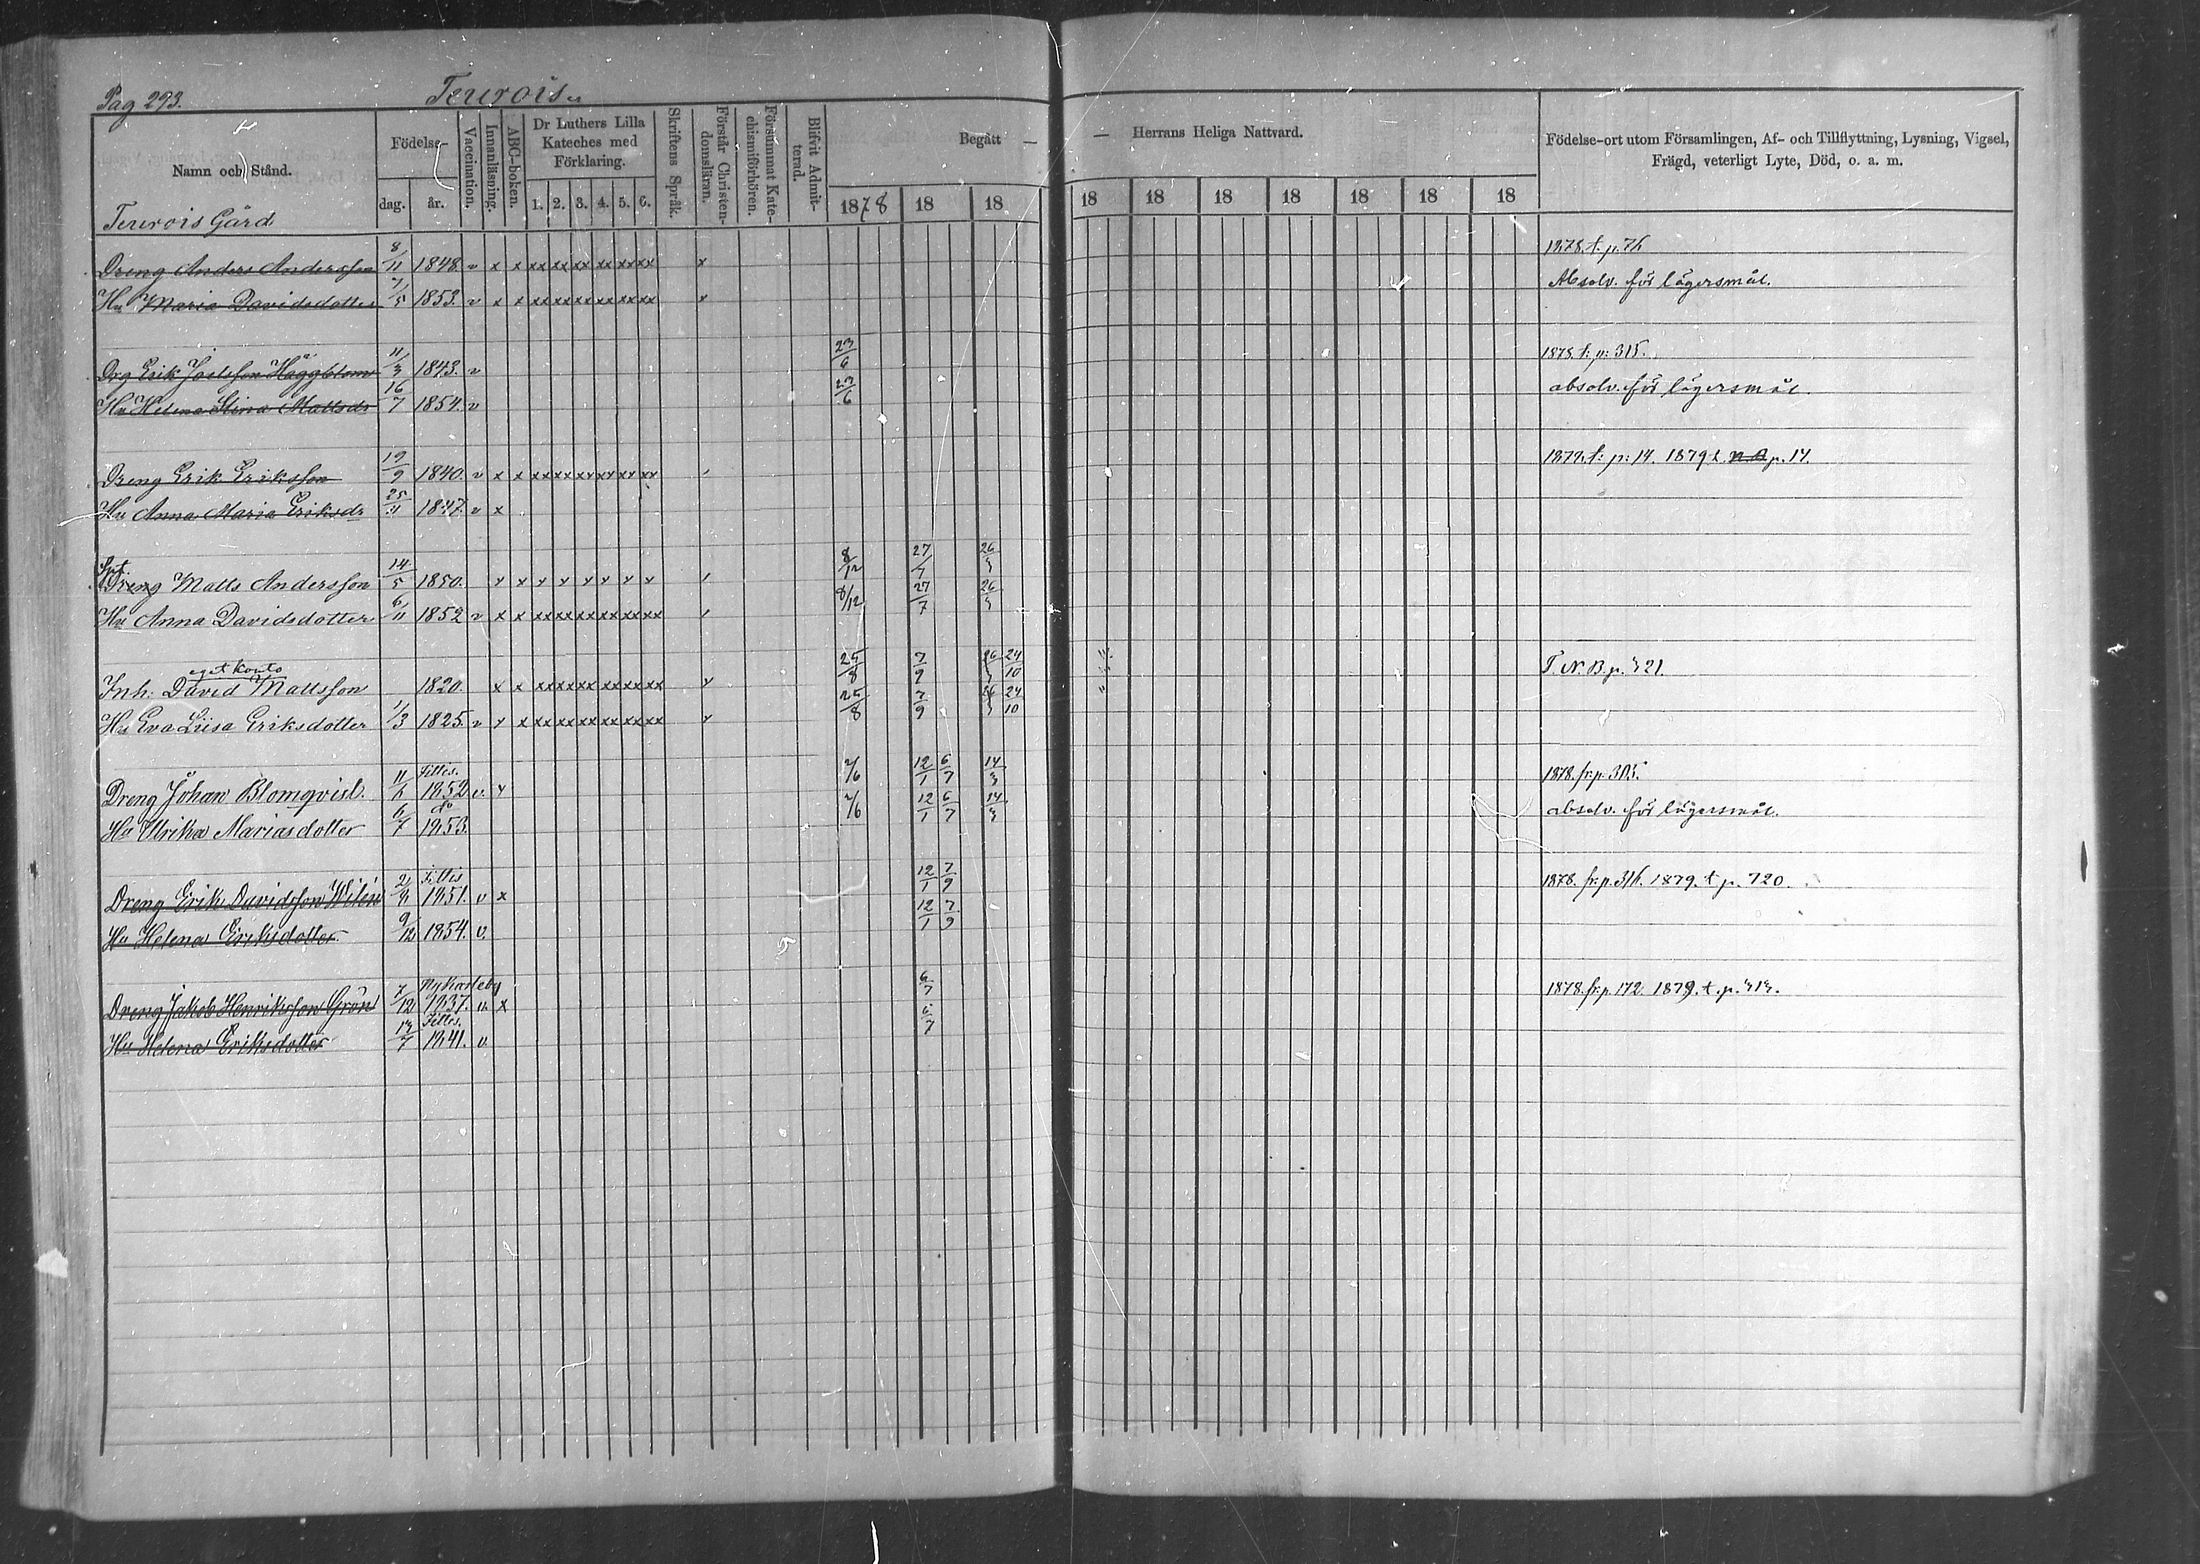 Pag 293. Terrois
Namn och Stånd. Födelse- dag. år. Vaccination. Innanläsning. ABC-boken. Dr Luthers Lilla Kateches med Förklaring. 1. 2. 3. 4. 5. 6. Skriftens Språk. Förstår Christen-domsläran. Försummat Kate-chismiförhören. Blifvit Admit-terad. Begått — — Herrans Heliga Nattvard. Födelse-ort utom Församlingen, Af- och Tillflyttning, Lysning, Vigsel, Frägd, veterligt Lyte, Död, o. a. m.
1878 18 18 18 18 18 18 18 18 18
Terrois Gård
Dreng Anders Andersson 8/11 1848. v x x xx xx xx xx xx xx x 1878. t. p. 76
Hu Maria Davidsdotter 7/5 1853. v x x xx xx xx xx xx xx x Absolv. för lägersmål.
Drg Erik Joelsson Häggblom 11/3 1843. v 23/6 1878. t. p: 315.
Hu Helena Stina Mattsdr 16/7 1854. v 23/6 absolv. för lägersmål.
Dreng Erik Eriksson 19/9 1840. v x x xx xx xx xx xx xx 1879. t: p: 14. 1879 t. p. 14.
Hu Anna Maria Eriksdr 25/11 1847. v x
Dreng Matts Andersson 14/5 1850. x x x x x x x x 8/12 27/7 26/3
Hu Anna Davidsdotter 6/11 1852 v x x xx xx xx xx xx xx 8/12 27/7 26/3
eget konto
Inh: David Mattsson 1820. x x xx xx xx xx xx xx x 25/8 7/9 26/3 24/10 T. N. B. p. 321.
Hu Eva Liisa Eriksdotter 1/3 1825. v x x xx xx xx xx xx xx x 25/8 7/9 26/3 24/10
Dreng Johan Blomqvist. 11/6 1852. v. x 2/6 12/1 6/7 14/3 1878. fr. p. 305.
Hu Ulrika Mariasdotter 6/7 do 1853. 2/6 12/1 6/7 14/3 absolv. för lägersmål.
Dreng Erik Davidsson Wilén 1851. v x 12/1 7/9 1878. fr. p. 316. 1879. t p. 720.
Hu Helena Eriksdotter 9/12 1854. v. 12/1 7/9
Dreng Jakob Henriksson Grön 7/12 Nykarleby 1837. v. x 6/7 1878. fr. p. 172. 1879. t. p. 313.
Hu Helena Eriksdotter 13/7 1841. v. 6/7